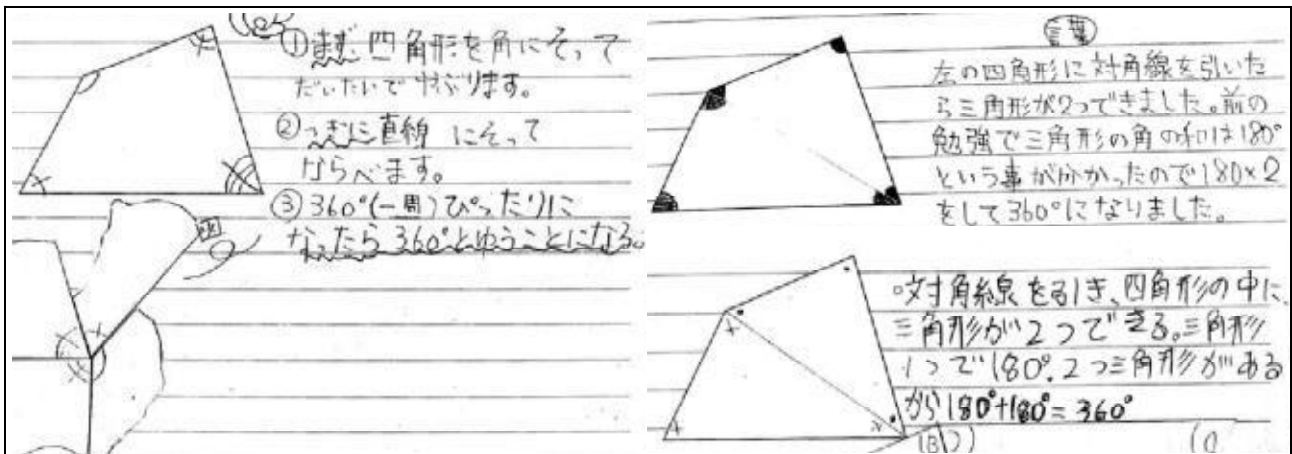 ①まず四角形を角にそって
だいたいでやぶります。
②つぎに直線にそって
ならべます。
③360°(一周)ぴったりに
なったら360°とゆうことになる。
図
言葉
左の四角形に対角線を引いた
ら三角形が2つできました。前の
勉強で三角形の角の和は180°
という事が分かったので180×2
をして360°になりました。
○対角線を引き、四角形の中に
三角形が2つできる。三角形
1つで180°.2つ三角形がある
から180°+180°=360°